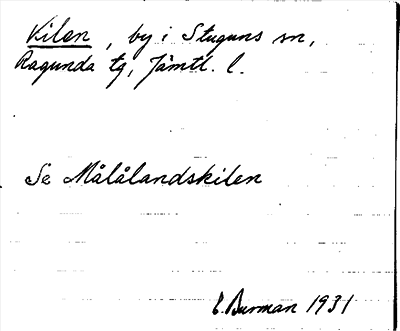 Kilen, by i Stuguns sn,
Ragunda tg, Jämtl. l.
Se Målålandskilen
E. Burman 1931